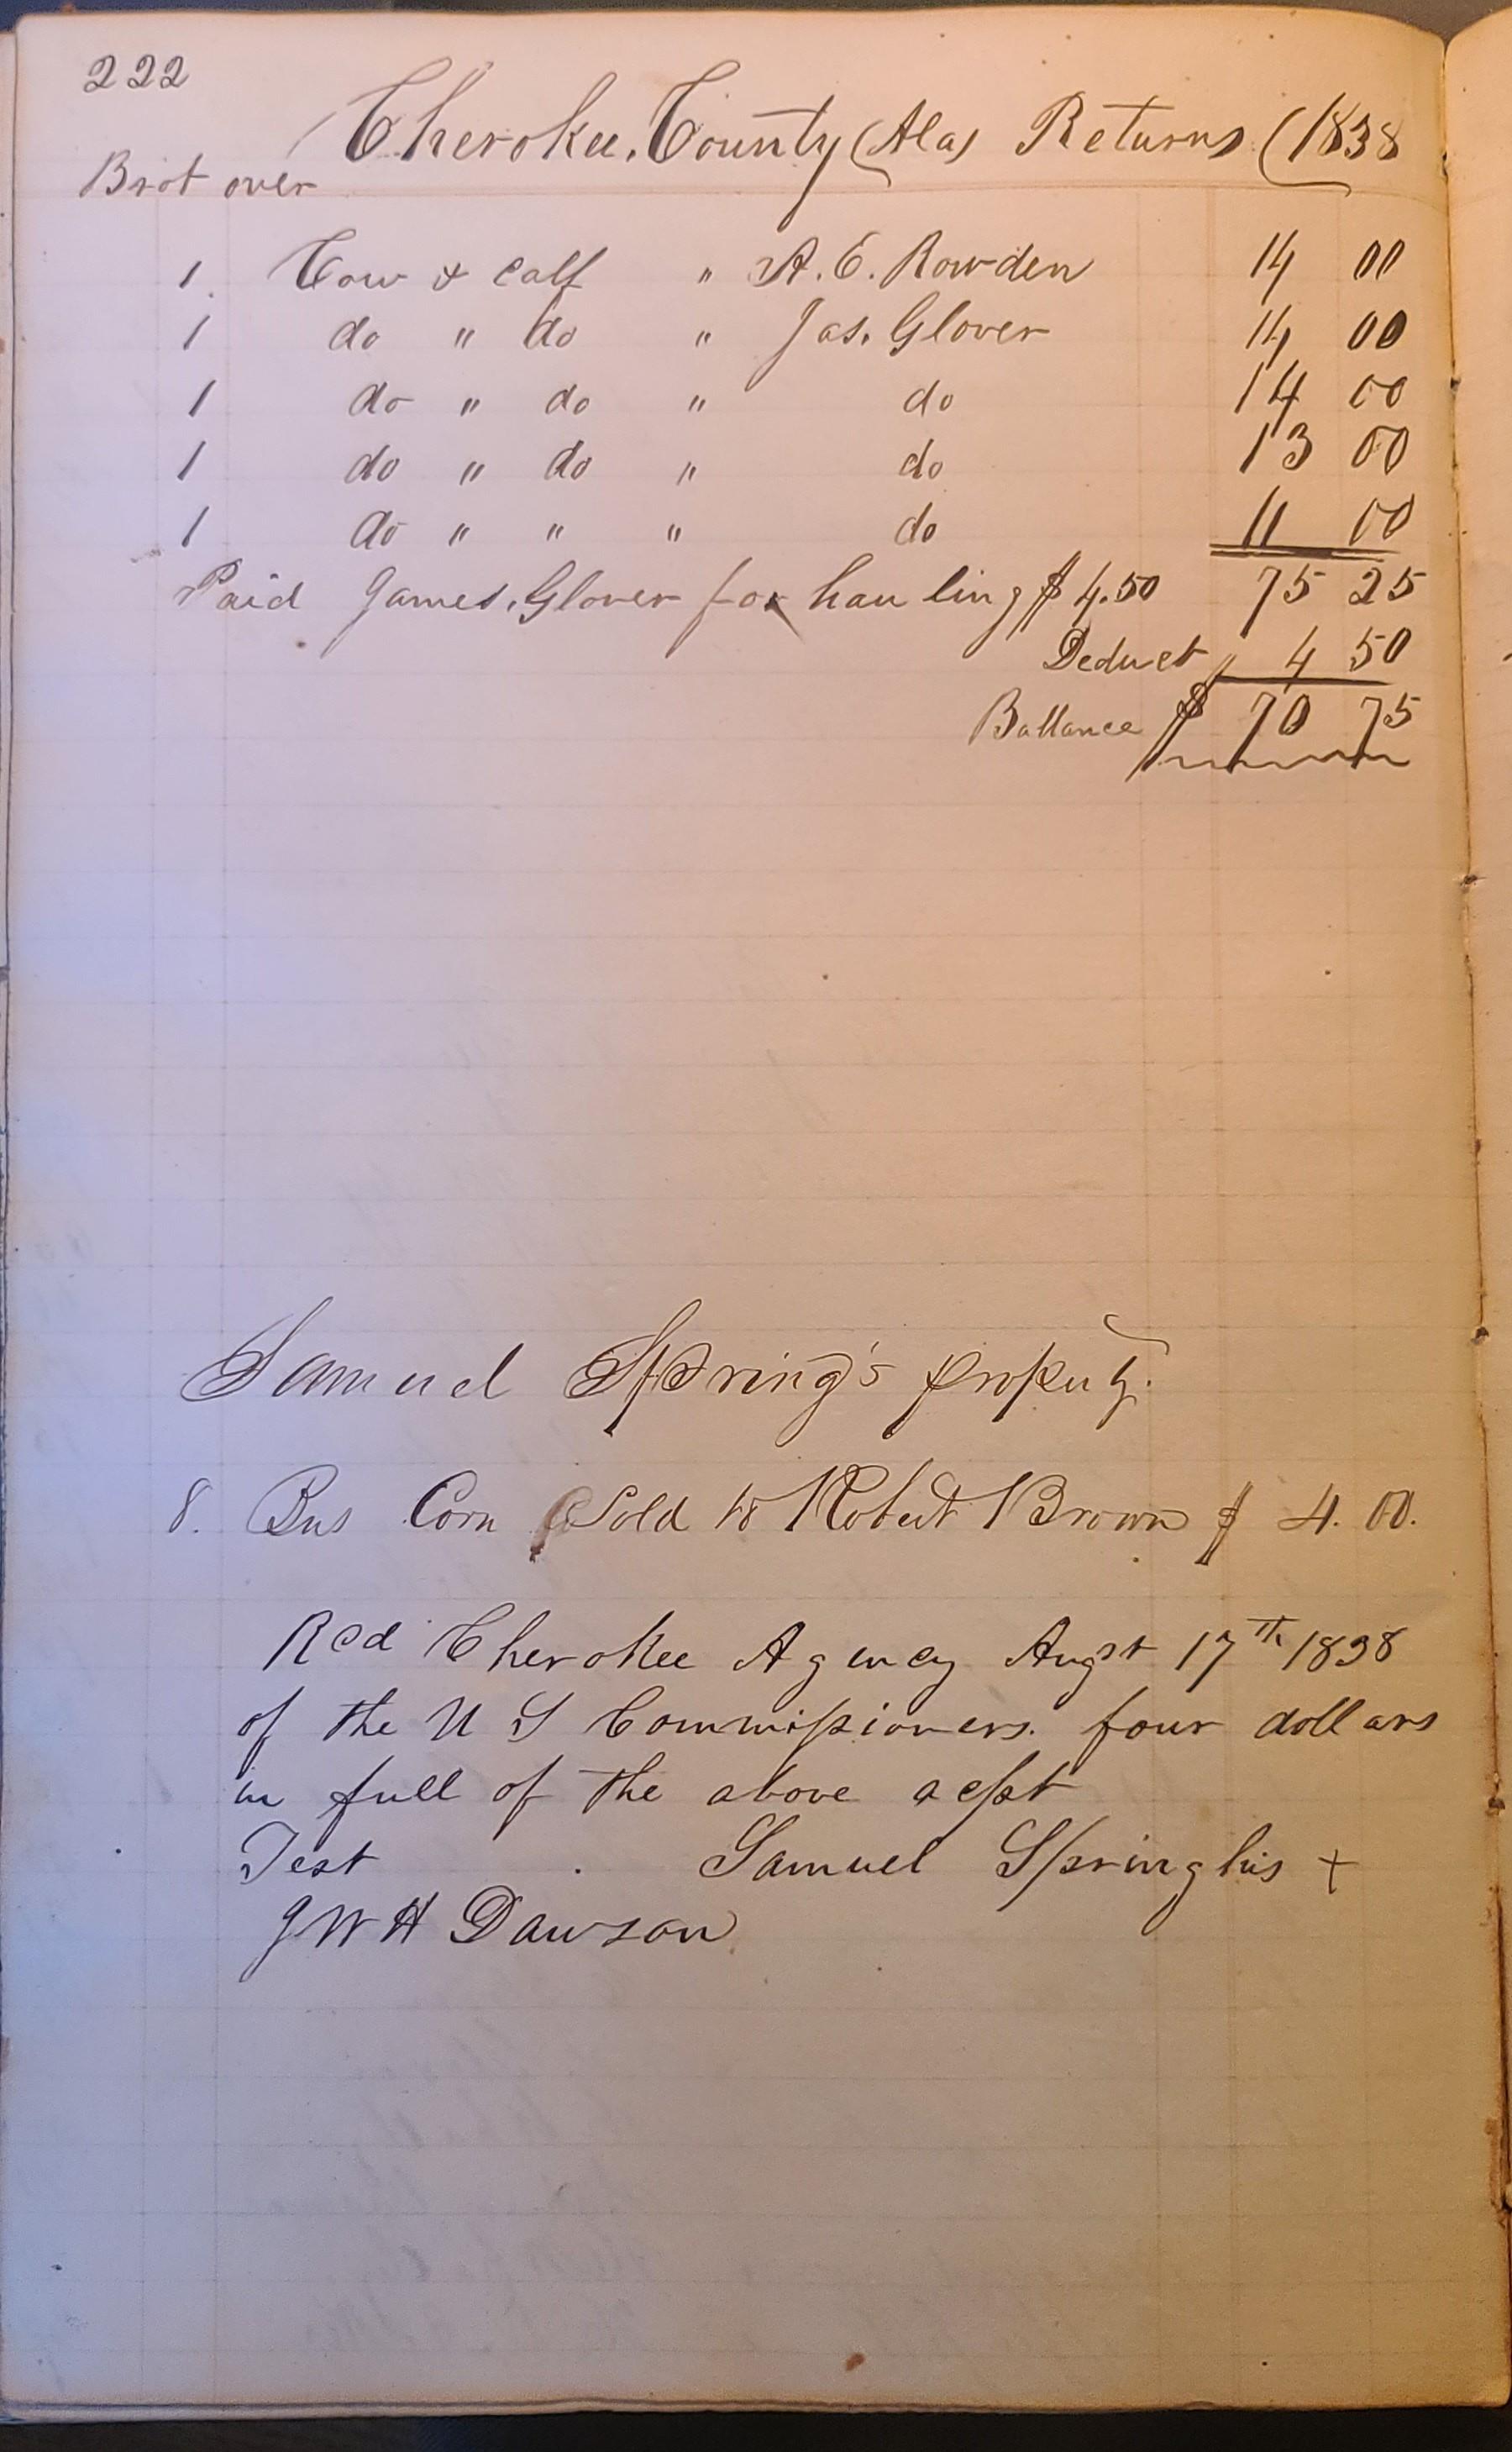 222
Cherokee County (Ala) Returns (1838
Brot over
1. Cow & calf " A. E. Rowden 14 00
1 do " do " Jas. Glover 14 00
1 do " do " do 14 00
1 do " do " do 13 00
1 do " " " do 11 00
Paid James Glover for hauling $4.50 75 25
Deduct 4 50
Ballance $ 70 75
Samuel Spring's property.
8. Bus Corn Sold to Robert Brown $ 4.00.
Red Cherokee Agency Augst 17th 1838
of the U S Commissioners. four dollars
in full of the above acpt
Test Samuel Spring his +
J W H Dawson